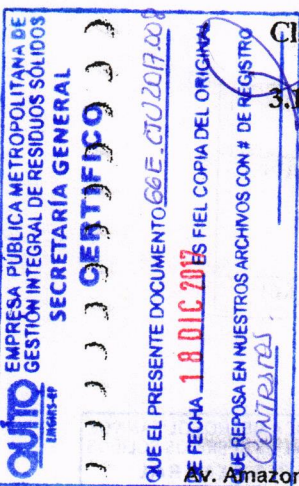 QUITO EMPRESA PÚBLICA METROPOLITANA DE
EMGIRS-EP GESTIÓN INTEGRAL DE RESIDUOS SÓLIDOS
SECRETARÍA GENERAL
CERTIFICO
QUE EL PRESENTE DOCUMENTO GGE-CJU 2017.008
DE FECHA 18 DIC 2017 ES FIEL COPIA DEL ORIGINAL
QUE REPOSA EN NUESTROS ARCHIVOS CON # DE REGISTRO
CONTRATOS.
Av. Amazon